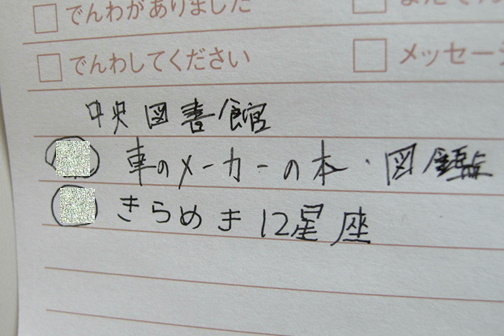 でんわがありました
でんわしてください
メッセー
中央図書館
車のメーカーの本・図鑑
きらめき12星座